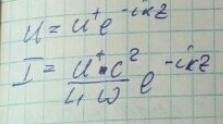 U = U⁺e^{-ikz}
I = \frac{U⁺·C²}{4ω} e^{-ikz}